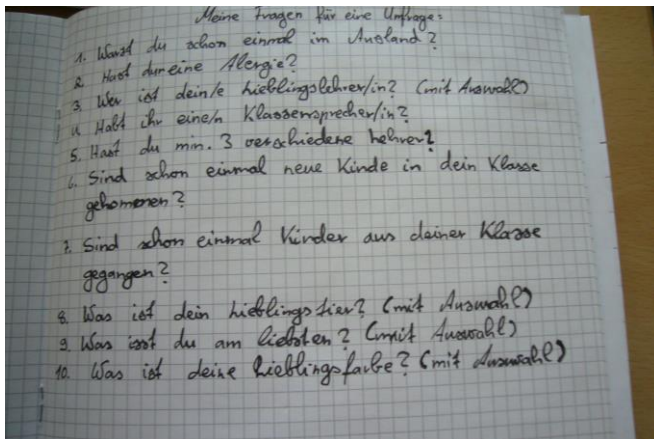 Meine Fragen für eine Umfrage:
1. Warst du schon einmal im Ausland?
2. Hast du eine Alergie?
3. Wer ist dein/e Lieblingslehrer/in? (mit Auswahl)
4. Habt ihr eine/n Klassensprecher/in?
5. Hast du min. 3 verschiedene Lehrer?
6. Sind schon einmal neue Kinde in dein Klasse
gekommen?
7. Sind schon einmal Kinder aus deiner Klasse
gegangen?
8. Was ist dein Lieblingstier? (mit Auswahl)
9. Was isst du am liebsten? (mit Auswahl)
10. Was ist deine Lieblingsfarbe? (mit Auswahl)